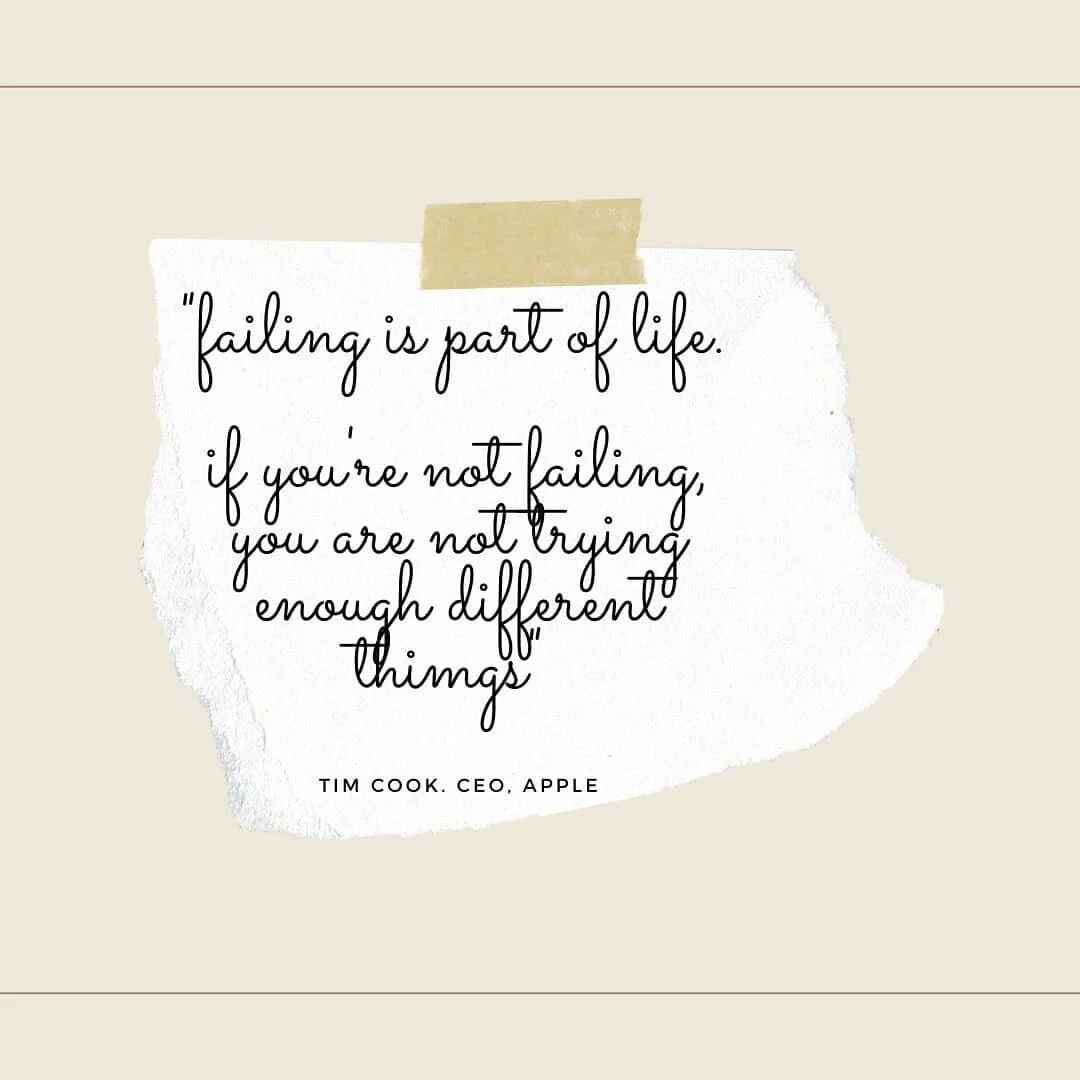 "failing is part of life.
if you're not failing,
you are not trying
enough different
thimgs"
TIM COOK. CEO, APPLE